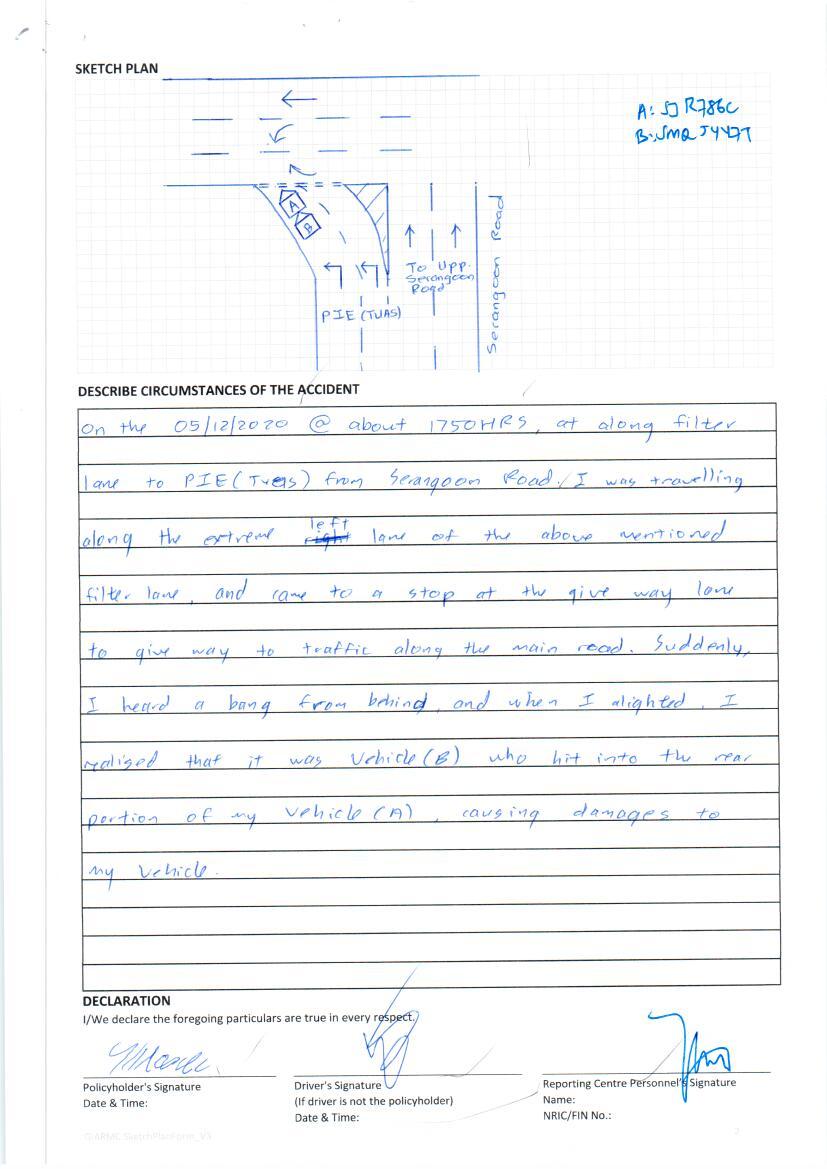 SKETCH PLAN
A: SJR786C
B: SMQ5447T
A
B
To Upp. Serangoon Road
Serangoon Road
PIE (TUAS)
DESCRIBE CIRCUMSTANCES OF THE ACCIDENT
On the 05/12/2020 @ about 1750HRS, at along filter
lane to PIE (Tuas) from Serangoon Road. I was travelling
left
along the extreme right lane of the above mentioned
filter lane, and came to a stop at the give way lane
to give way to traffic along the main road. Suddenly,
I heard a bang from behind, and when I alighted, I
realised that it was Vehicle (B) who hit into the rear
portion of my vehicle (A), causing damages to
my vehicle.
DECLARATION
I/We declare the foregoing particulars are true in every respect.
Policyholder's Signature
Date & Time:
Driver's Signature
(If driver is not the policyholder)
Date & Time:
Reporting Centre Personnel's Signature
Name:
NRIC/FIN No.:
GIARMC SketchPlanForm_V3
2